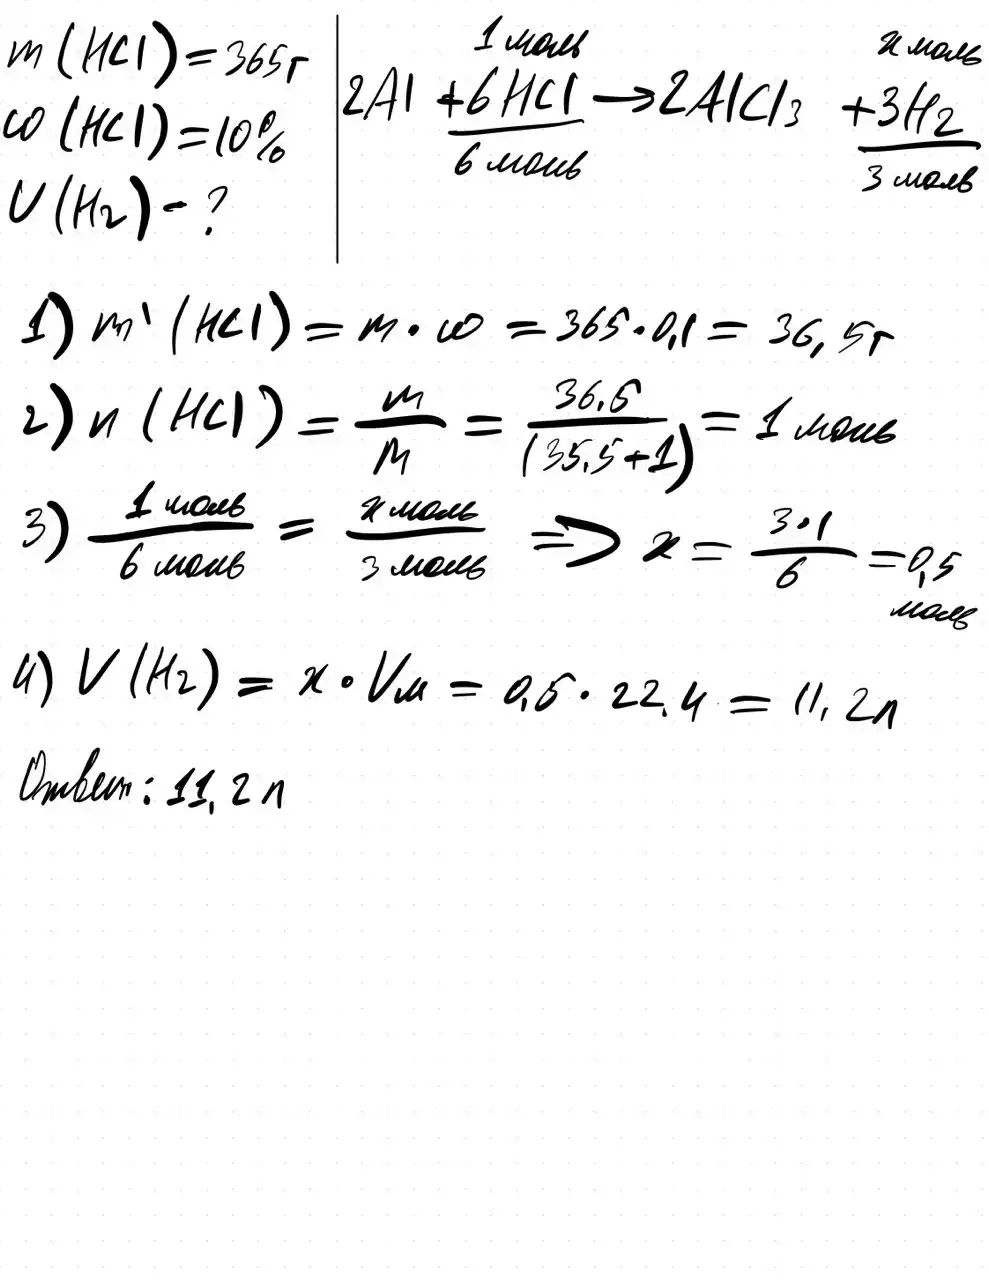 m (HCl) = 365г
ω (HCl) = 10%
V (H₂) - ?
1 моль x моль
2Al + 6HCl → 2AlCl₃ + 3H₂
6 моль 3 моль
1) m' (HCl) = m · ω = 365 · 0,1 = 36,5г
2) n (HCl) = m/M = 36.5/(35,5+1) = 1 моль
3) 1 моль/6 моль = x моль/3 моль => x = 3·1/6 = 0,5 моль
4) V (H₂) = x · Vм = 0,5 · 22,4 = 11,2л
Ответ: 11,2 л